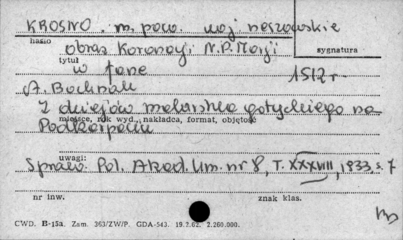 KROSNO. m. pow. woj. rzeszowskie
hasło
obraz Koronacji N.P. Marji
tytuł
sygnatura
w farze
1512 r.
A. Bochnak
Z dziejów malarstwa gotyckiego na
miejsce, rok wyd., nakładca, format, objętość
Podkarpaciu
uwagi:
Spraw. Pol. Akad. Um. nr 8, T. XXXVIII, 1933, s. 7
nr inw.
znak klas.
CWD. B-15a. Zam. 363/ZW/P. GDA-543. 19.2.62. 2.260.000.